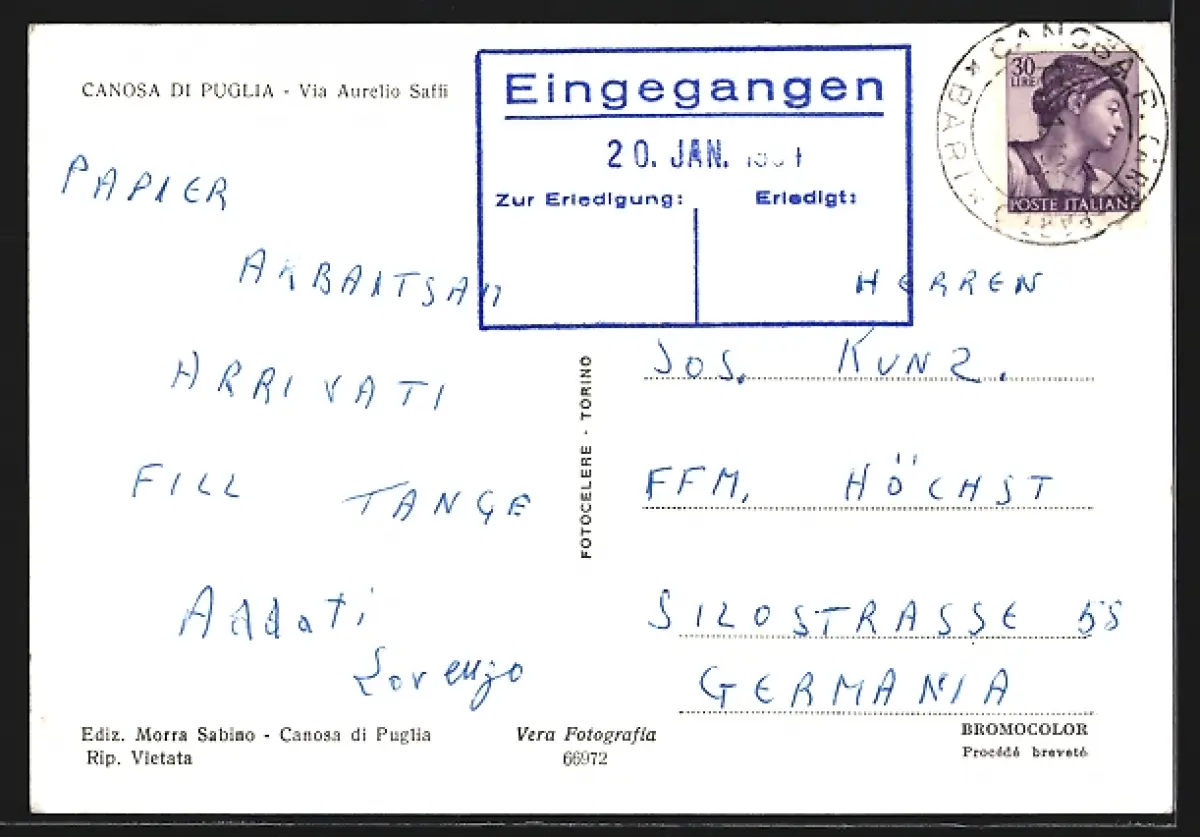 CANOSA DI PUGLIA - Via Aurelio Saffi
PAPIER
ARBAITSAM
ARRIVATI
FILL TANGE
Addati
Lorenzo
Eingegangen
20. JAN.
Zur Erledigung: Erledigt:
30
LIRE
POSTE ITALIANE
CANOSA
BARI
HERREN
JOS. KUNZ.
FFM. HÖCHST
SILOSTRASSE 58
GERMANIA
FOTOCELERE - TORINO
Ediz. Morra Sabino - Canosa di Puglia
Rip. Vietata
Vera Fotografia
66972
BROMOCOLOR
Procédé breveté